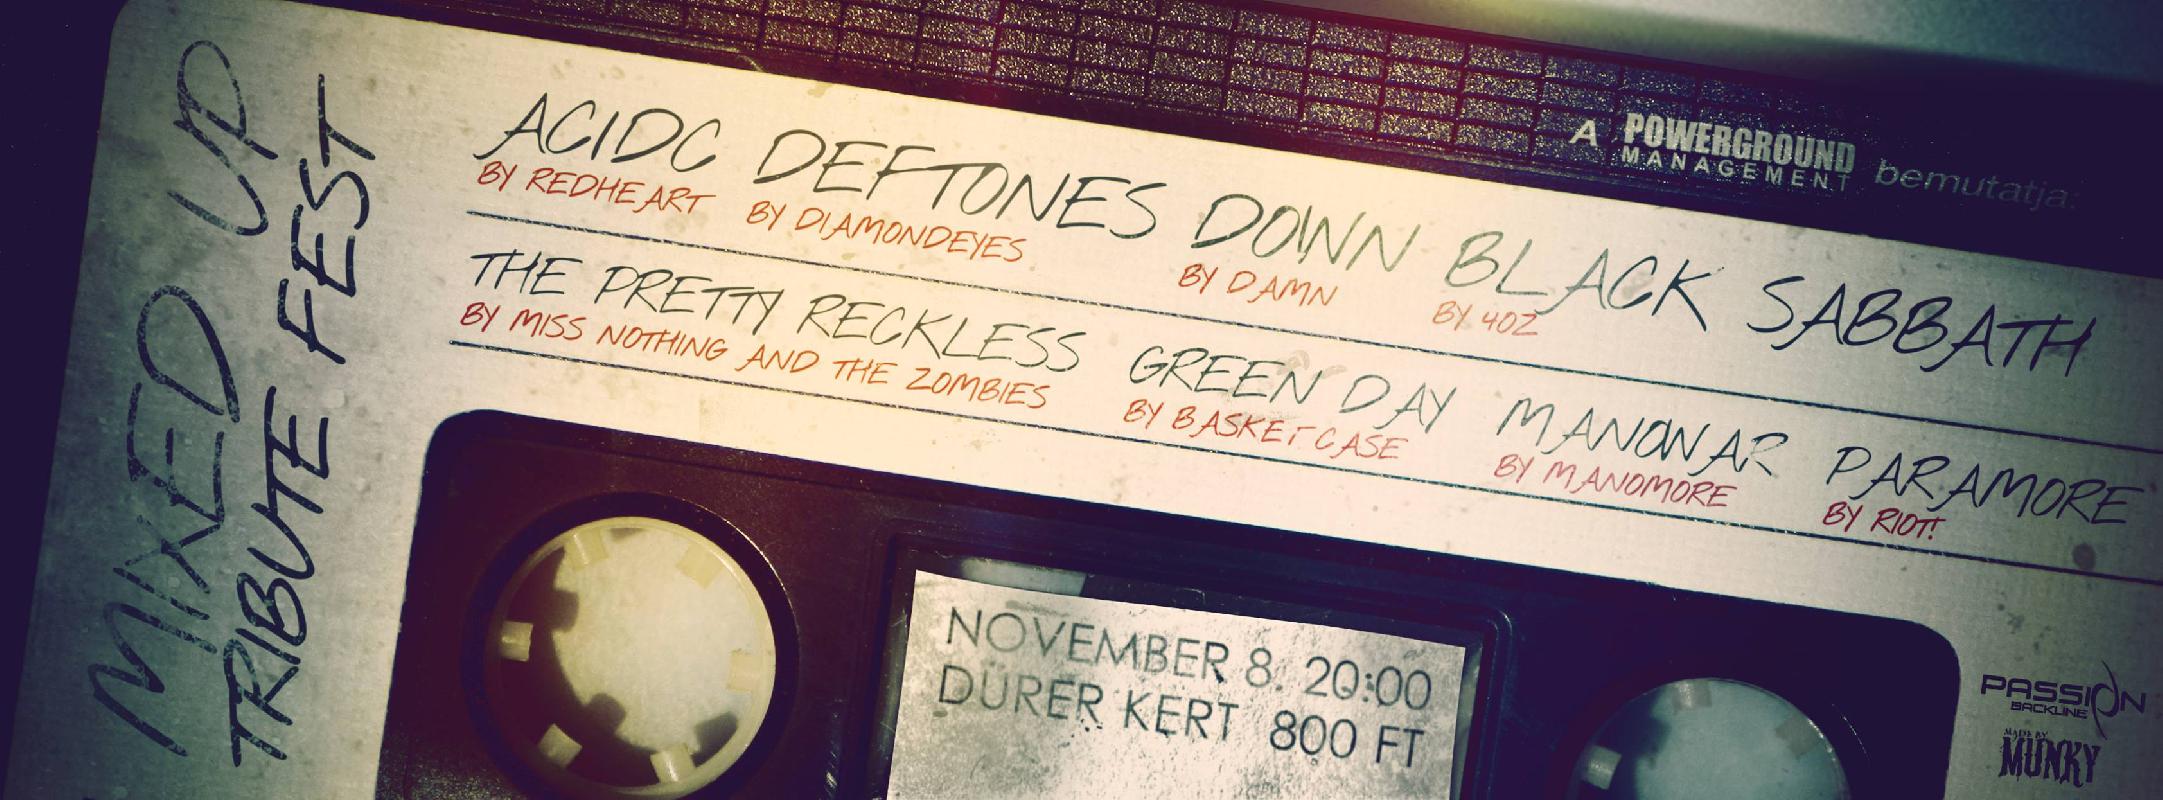 MIXED UP
TRIBUTE FEST
A POWERGROUND MANAGEMENT bemutatja:
ACIDC DEFTONES DOWN BLACK SABBATH
BY REDHEART BY DIAMONDEYES BY DAMN BY 4OZ
THE PRETTY RECKLESS GREEN DAY MANOWAR PARAMORE
BY MISS NOTHING AND THE ZOMBIES BY BASKET CASE BY MANOMORE BY RIOT!
NOVEMBER 8. 20:00
DÜRER KERT 800 FT
PASSION
BACKLINE
MADE BY
MUNKY